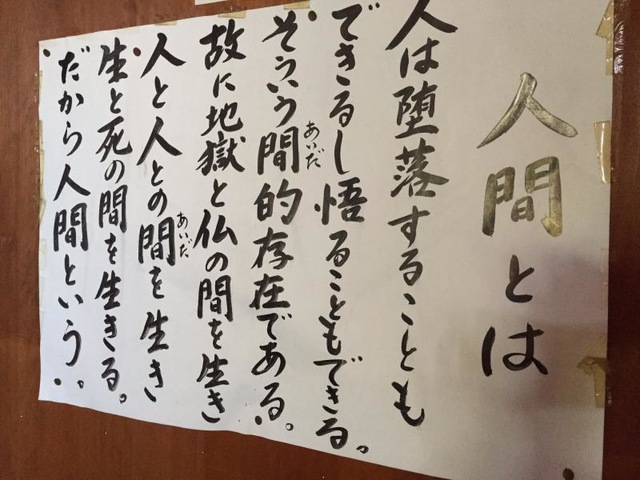 人間とは
人は堕落することも
できるし悟ることもできる。
そういう間的存在である。
あいだ
故に地獄と仏の間を生き
人と人との間を生き
あいだ
生と死の間を生きる。
だから人間という。